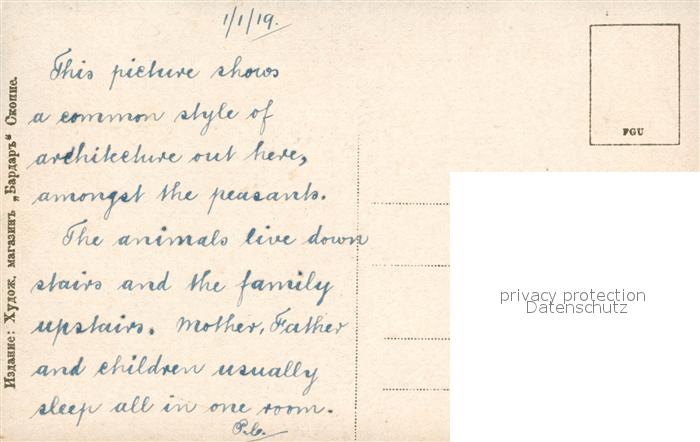 1/1/19.
This picture shows
a common style of
architecture out here,
amongst the peasants.
The animals live down
stairs and the family
upstairs. Mother, Father
and children usually
sleep all in one room.
P.C.
Издание: Худож. магазинъ „Вардаръ“ Скопие.
FGU
privacy protection
Datenschutz